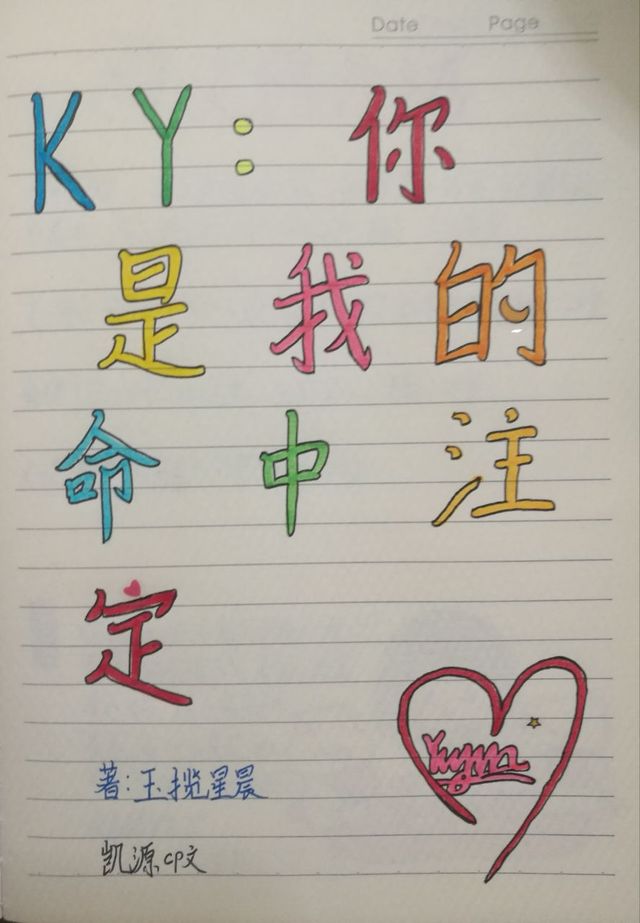 Date Page
KY：你
是我的
命中注
定
著：玉揽星晨
凯源cp文